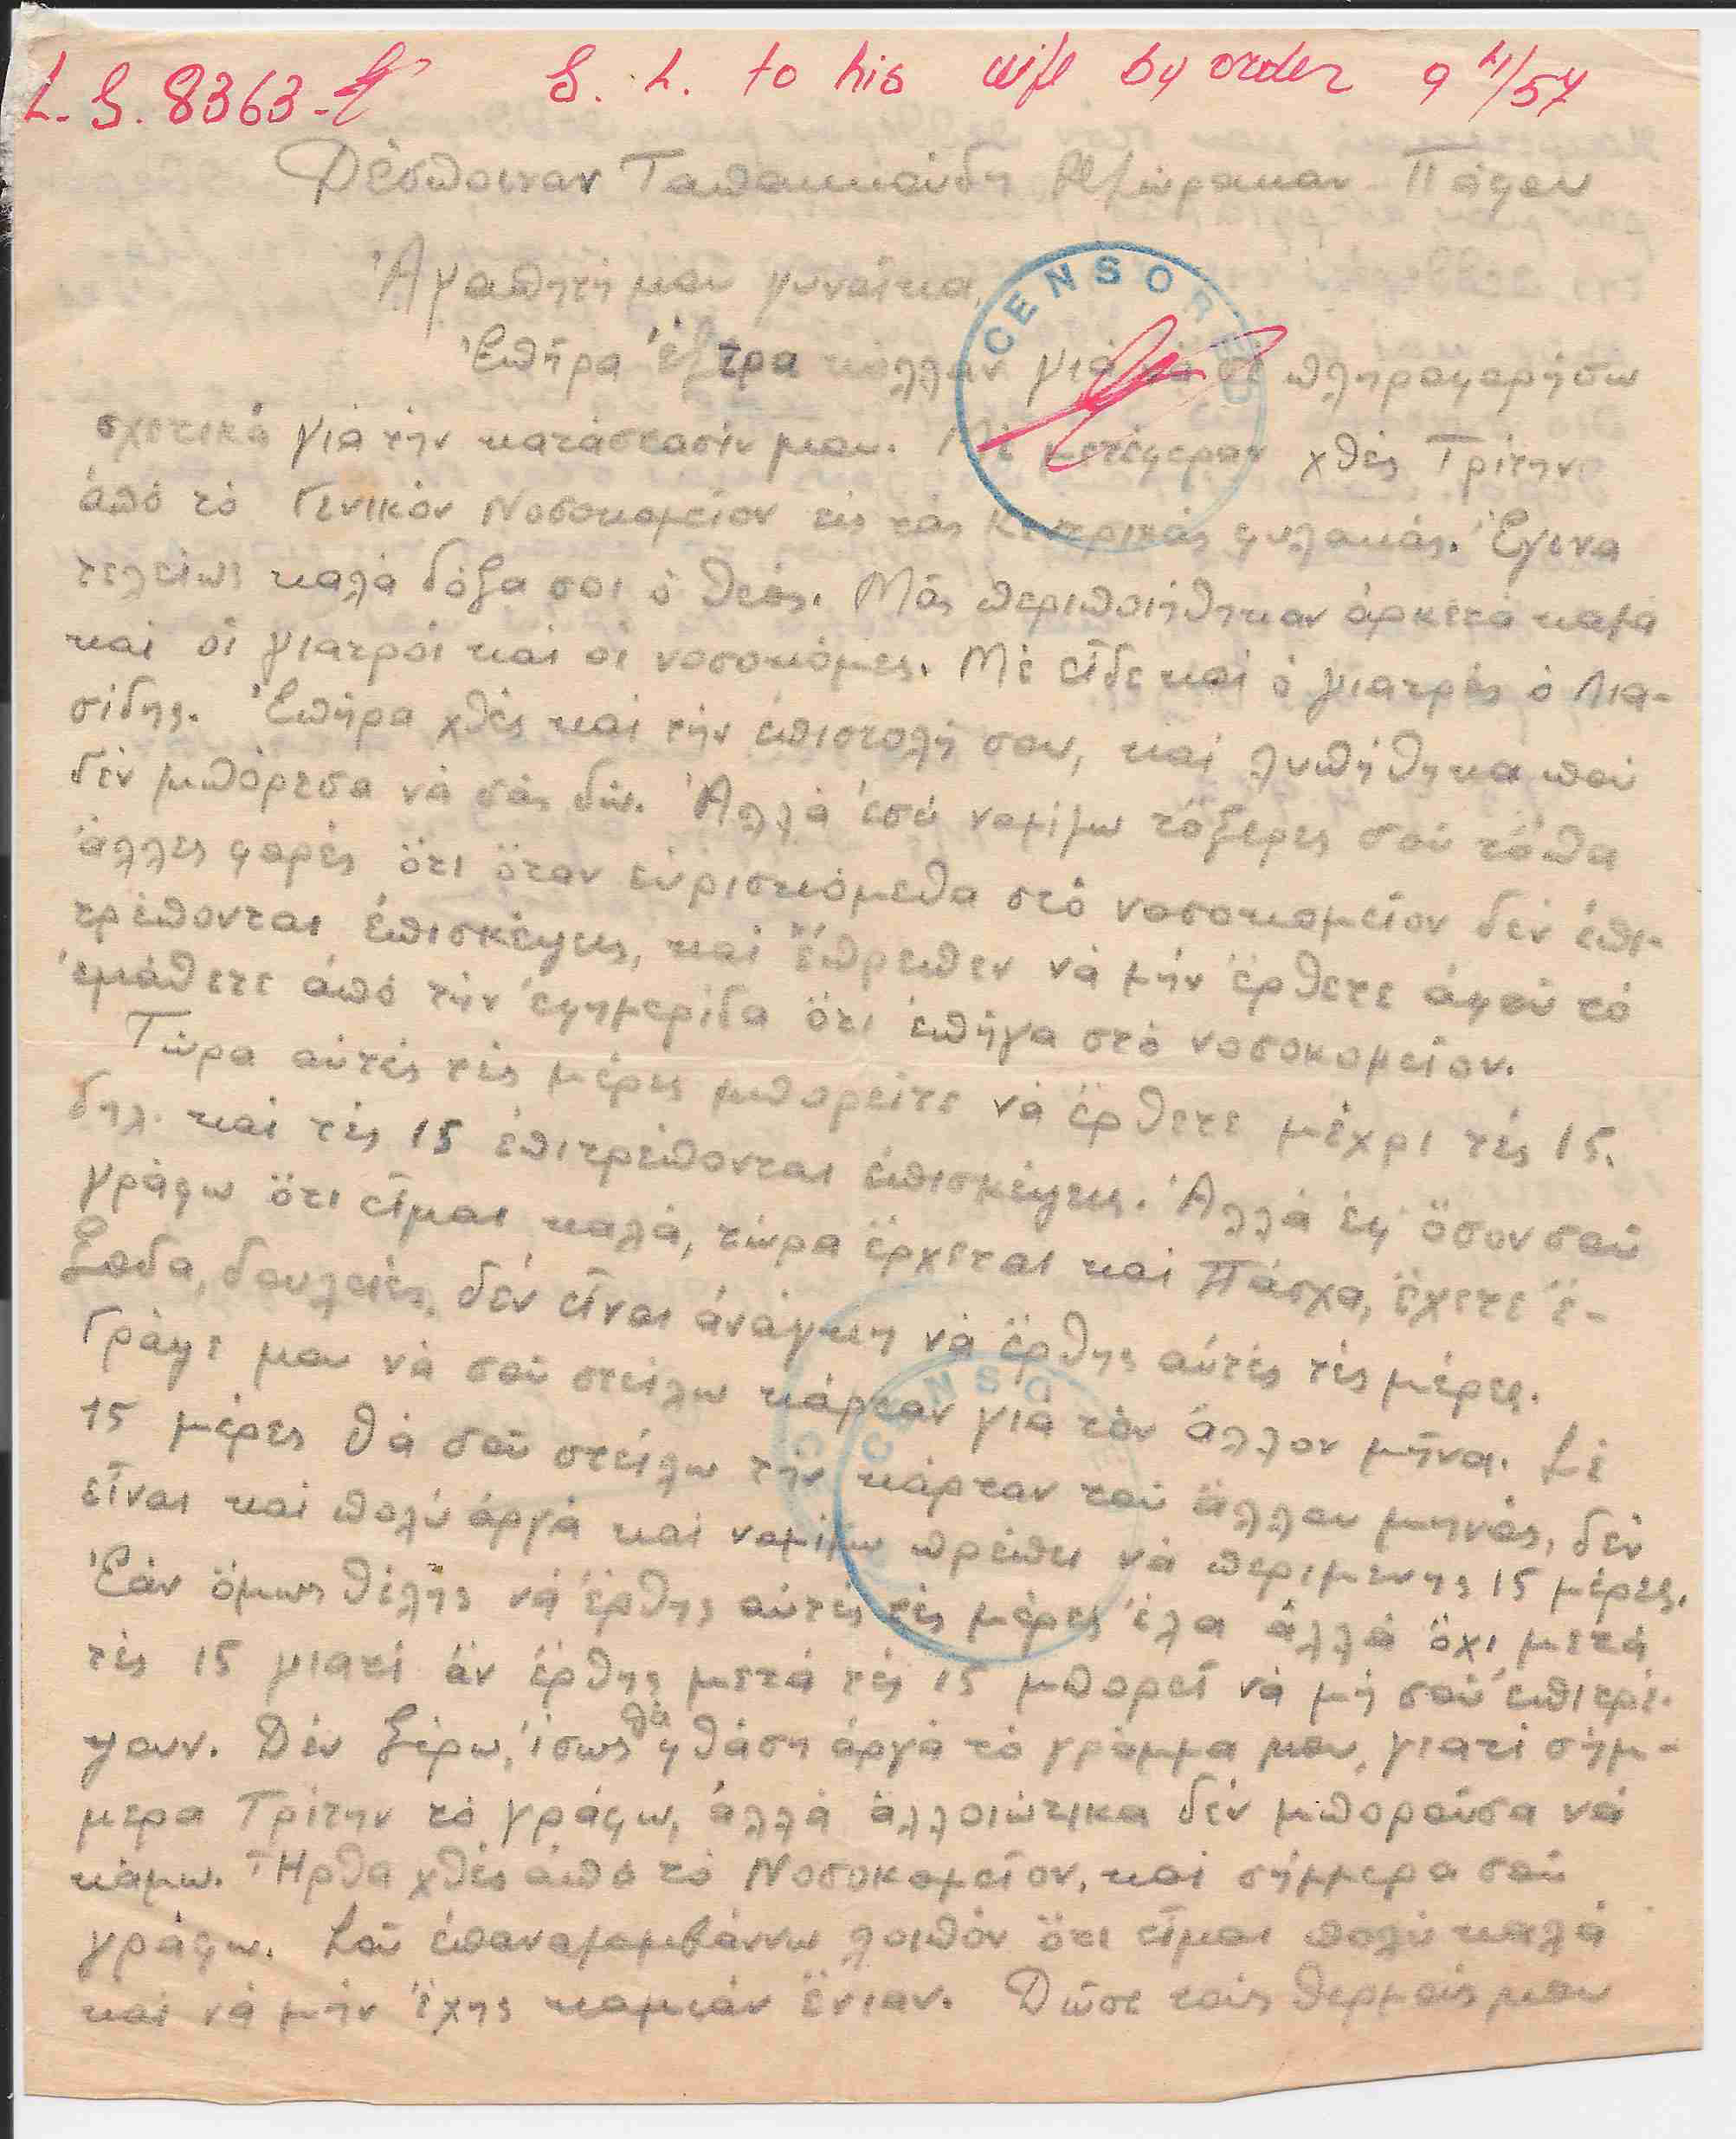 L. S. 8363 - S. L. to his wife by order 9 4/57
Δέσποιναν Ταπακκούδη Αξύλακαν Πάφου
Ἀγαπητή μου γυναῖκα,
CENSORED
Ἐπῆρα ἔξτρα κόλλαν γιά νά σέ πληροφορήσω
σχετικά γιά τήν κατάστασίν μου. Μέ μετέφεραν χθές Τρίτην
ἀπό τό Γενικόν Νοσοκομεῖον εἰς τάς Κεντρικάς φυλακάς. Ἔγινα
τελείως καλά δόξα σοι ὁ θεός. Μᾶς περιποιήθηκαν ἀρκετά καλά
καί οἱ γιατροί καί οἱ νοσοκόμες. Μέ εἶδε καί ὁ γιατρός ὁ Λια-
σίδης. Ἐπῆρα χθές καί τήν ἐπιστολή σου, καί λυπήθηκα πού
δέν μπόρεσα νά σᾶς δῶ. Ἀλλά ἐσύ νομίζω τὄξερες σοῦ τὄπα
ἄλλες φορές ὅτι ὅταν εὑρισκόμεθα στό νοσοκομεῖον δέν ἐπι-
τρέπονται ἐπισκέψεις, καί ἔπρεπεν νά μήν ἔρθετε ἀφοῦ τό
ἐμάθετε ἀπό τήν ἐφημερίδα ὅτι ἐπῆγα στό νοσοκομεῖον.
Τώρα αὐτές τές μέρες μπορεῖτε νά ἔρθετε μέχρι τές 15.
δηλ. καί τές 15 ἐπιτρέπονται ἐπισκέψεις. Ἀλλά ἐφ' ὅσον σοῦ
γράφω ὅτι εἶμαι καλά, τώρα ἔρχεται καί Πάσχα, ἔχετε ἔ-
ξοδα, δουλειές, δέν εἶναι ἀνάγκη νά ἔρθης αὐτές τές μέρες.
Γράψε μου νά σοῦ στείλω κάρταν γιά τόν ἄλλον μῆνα. Σέ
CENSORED
15 μέρες θά σοῦ στείλω τήν κάρταν τοῦ ἄλλου μηνός, δέν
εἶναι καί πολύ ἀργά καί νομίζω πρέπει νά περιμένης 15 μέρες.
Ἐάν ὅμως θέλης νά ἔρθης αὐτές τές μέρες ἔλα ἀλλά ὄχι μετά
τές 15 γιατί ἄν ἔρθης μετά τές 15 μπορεῖ νά μή σοῦ ἐπιτρέ-
ψουν. Δέν ξέρω, ἴσως θά φθάση ἀργά τό γράμμα μου, γιατί σήμ-
μερα Τρίτην τό γράφω, ἀλλά ἀλλοιώτικα δέν μποροῦσα νά
κάμω. Ἦρθα χθές ἀπό τό Νοσοκομεῖον, καί σήμμερα σοῦ
γράφω. Σοῦ ἐπαναλαμβάννω λοιπόν ὅτι εἶμαι πολύ καλά
καί νά μήν ἔχης καμιάν ἔνιαν. Δῶσε τούς θερμούς μου